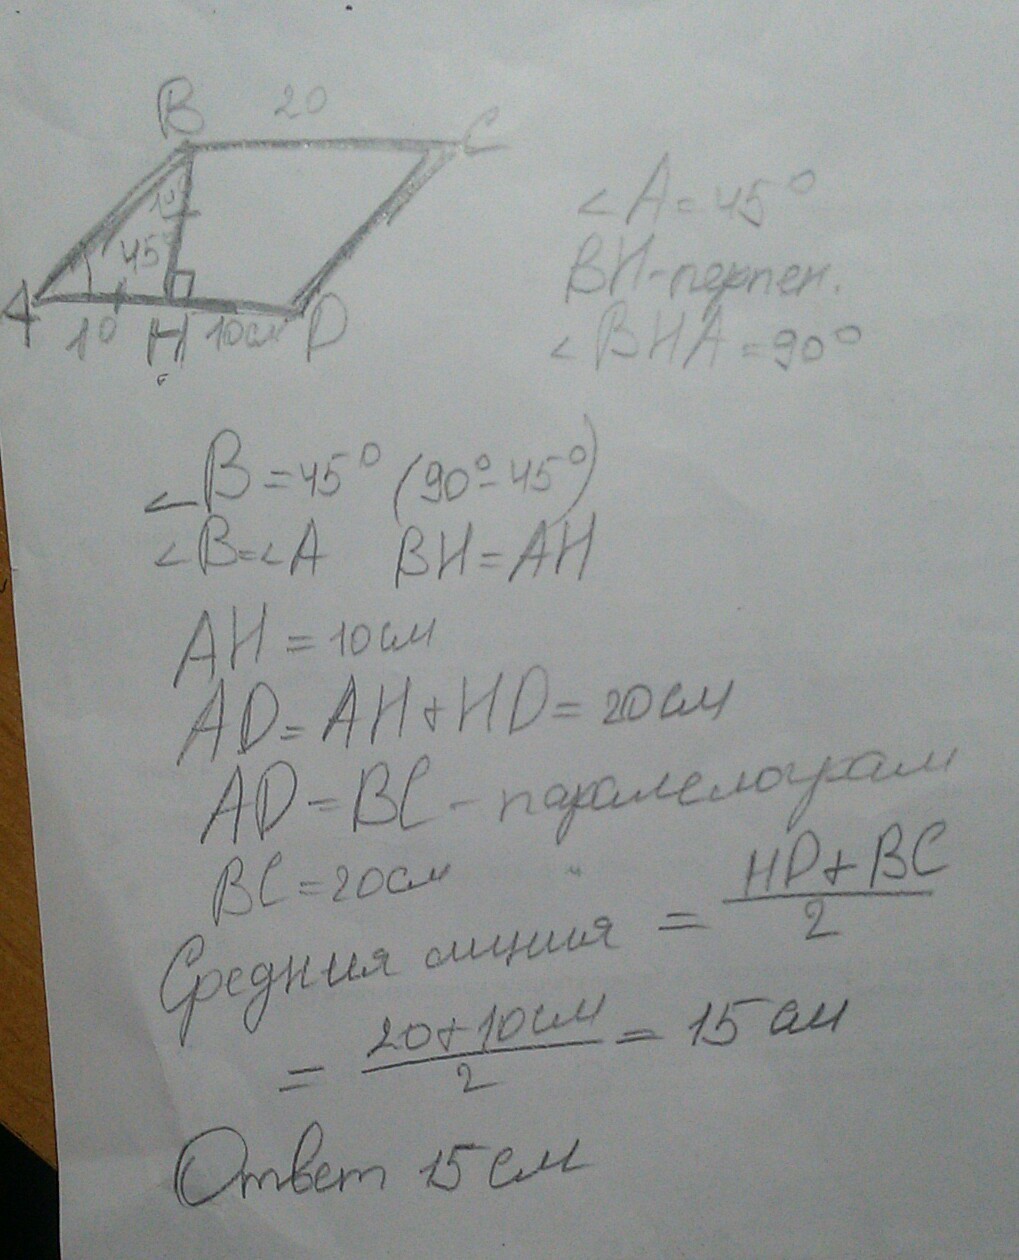 B 20 C
10
45°
A 10 H 10см D
∠A=45°
BH-перпен.
∠BHA=90°
∠B=45° (90°-45°)
∠B=∠A BH=AH
AH=10см
AD=AH+HD=20см
AD=BC-паралелограм
BC=20см
Средния линия = HD+BC / 2
= 20+10см / 2 = 15 см
Ответ 15 см